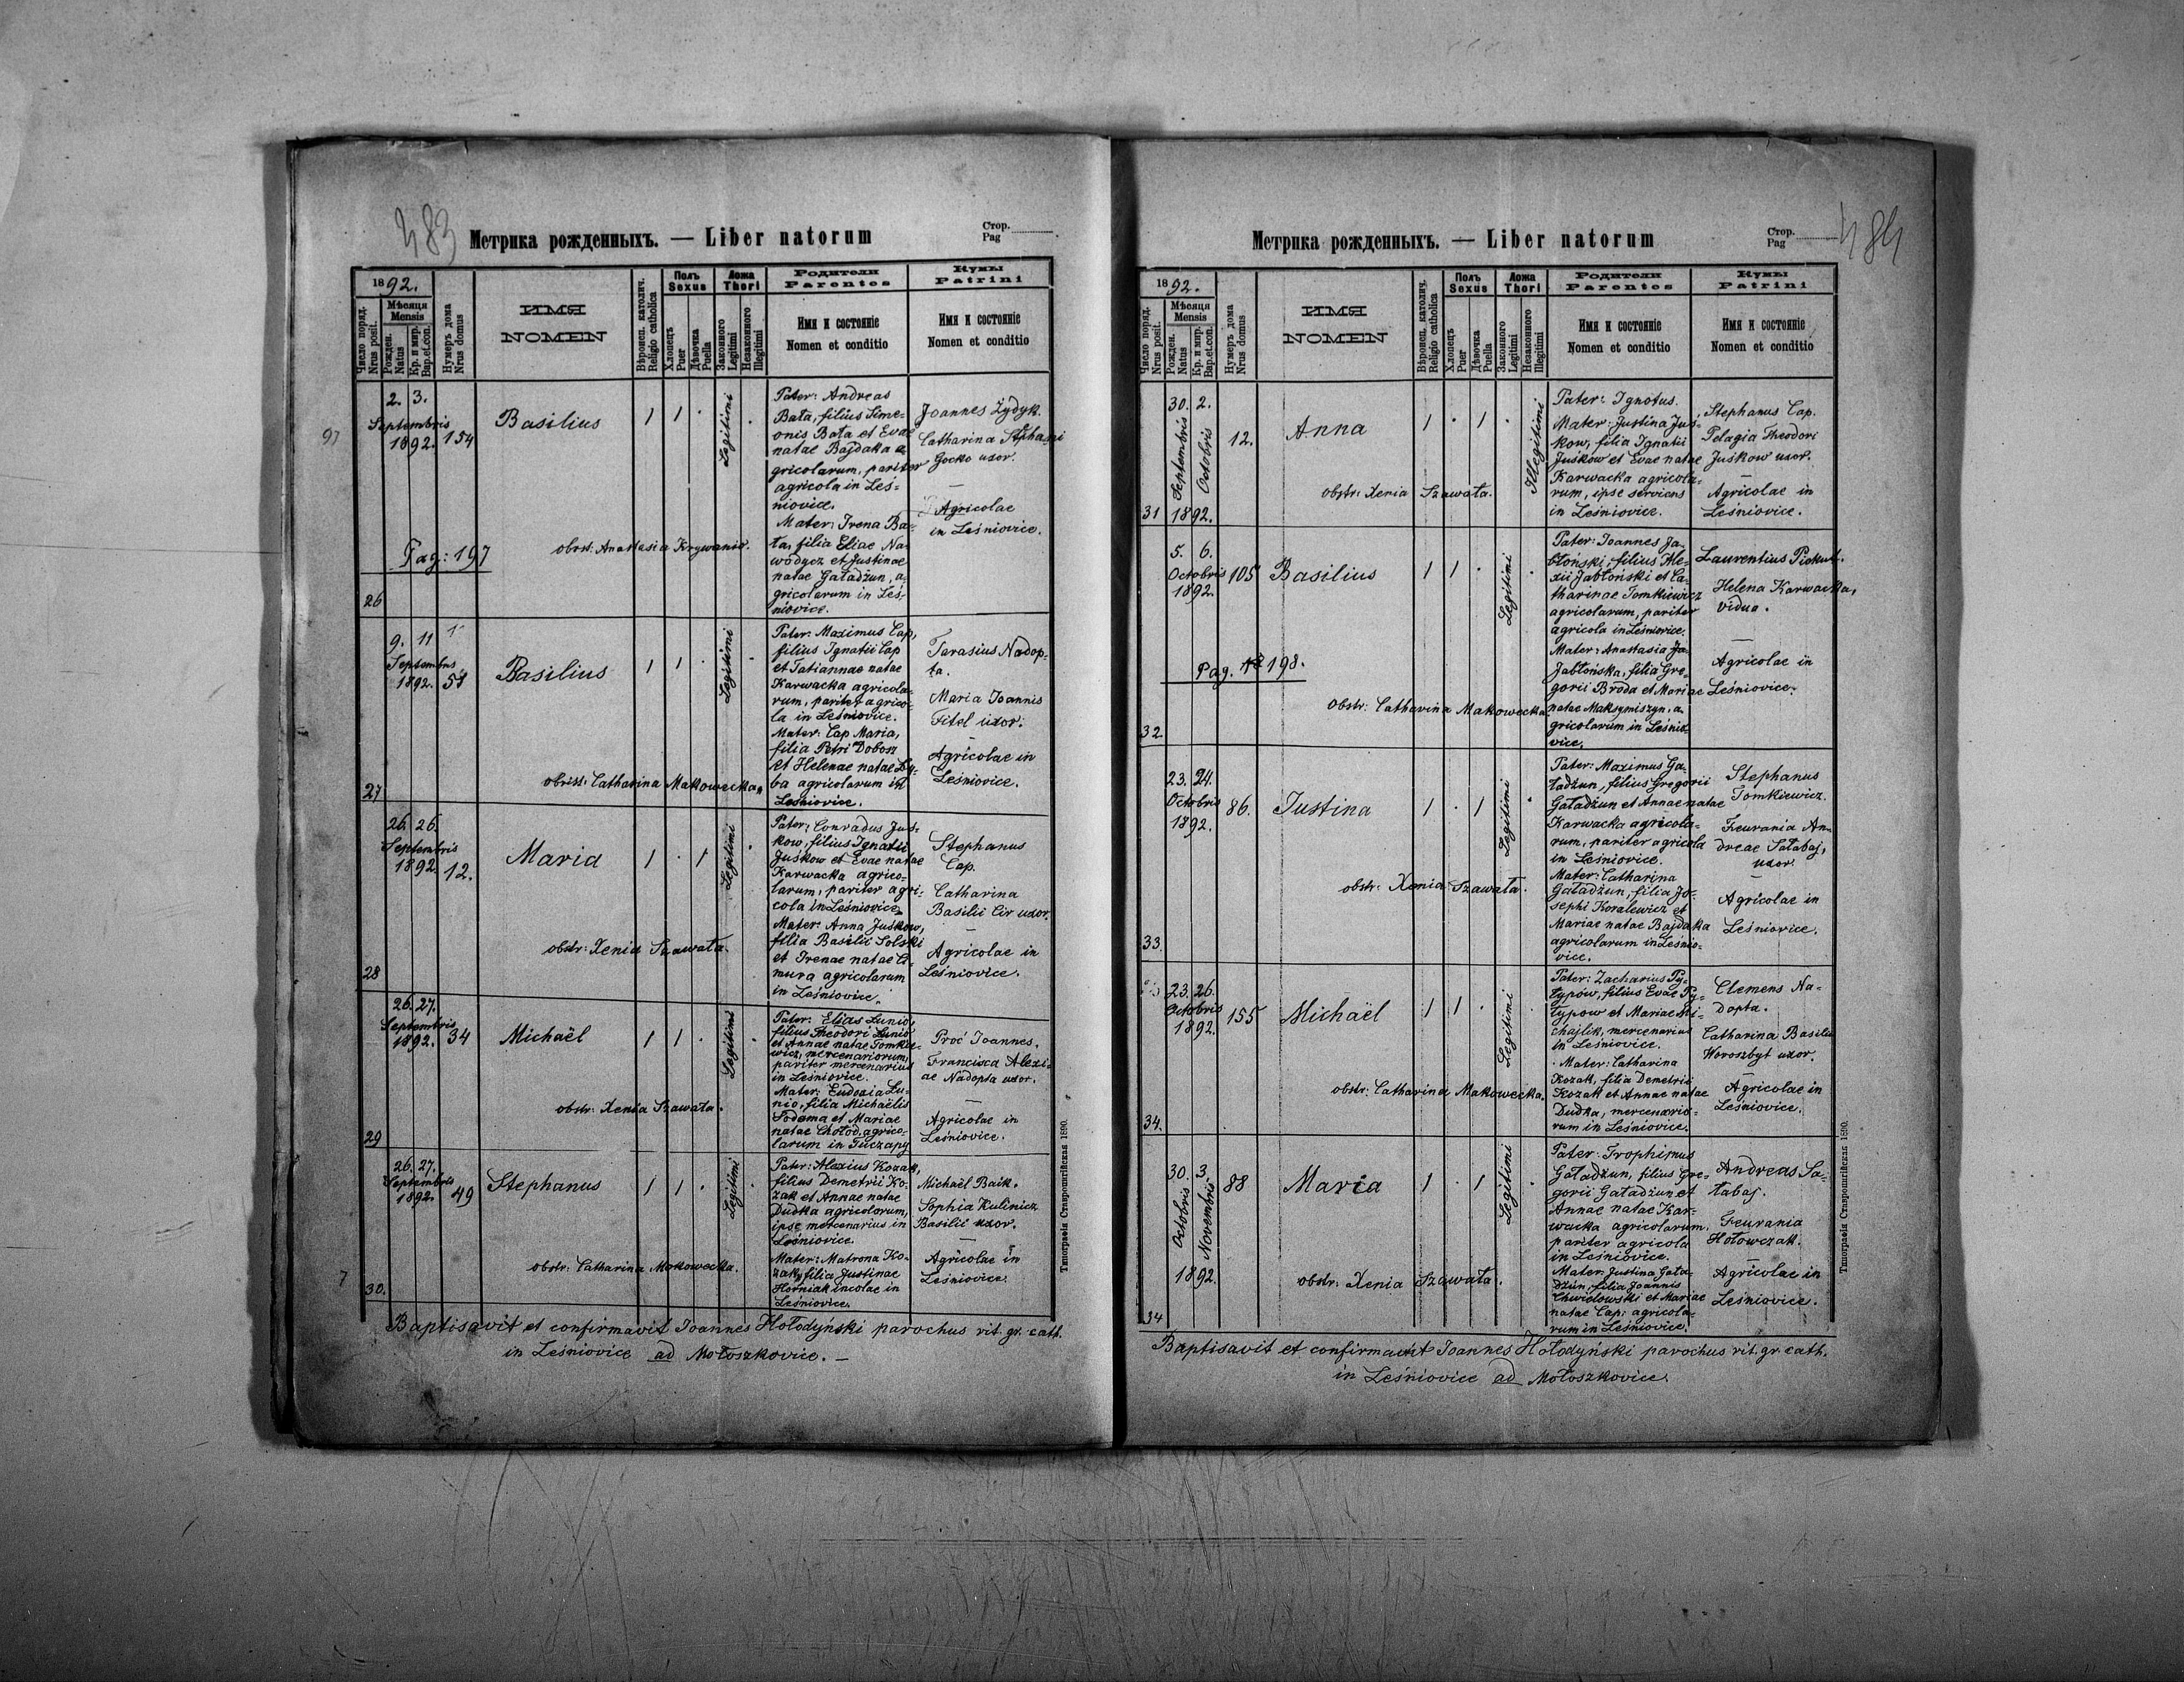 483
Метрика рожденныхъ. — Liber natorum
Стор.
Pag
1892.
Число поряд.
Nrus posit.
Мѣсяця
Mensis
Рожден.
Natus
Кр. и мир.
Bap.et.con.
Нумеръ дома
Nrus domus
ИМЯ
NOMEN
Вѣроисп. католич.
Religio catholica
Полъ
Sexus
Хлопецъ
Puer
Дѣвочка
Puella
Ложа
Thori
Законного
Legitimi
Незаконного
Illegitimi
Родители
Parentes
Имя и состояніе
Nomen et conditio
Кумы
Patrini
Имя и состояніе
Nomen et conditio
97
26
2. 3.
Septembris
1892.
154
Basilius
1 1 .
Legitimi .
Pater: Andreas
Bata, filius Sime-
onis Bata et Evae
natae Bajdaka a-
gricolarum, pariter
agricola in Leś-
niovice.
Mater: Irena Ba-
ta, filia Eliae Na-
wodycz et Justinae
natae Gaładżun, a-
gricolarum in Leś-
niovice.
Joannes Zydyk.
Catharina Stephani
Gocko uxor.
—
Agricolae
in Leśniovice.
obsts: Anastasia Krywanio.
Pag: 197
27
9. 11
Septembris
1892.
58
Basilius
1 1 .
Legitimi .
Pater: Maximus Cap,
filius Ignatii Cap
et Tatiannae natae
Karwacka agricola-
rum, pariter agrico-
la in Leśniovice.
Mater: Cap Maria,
filia Petri Dobosz
et Helenae natae Dy-
ba agricolarum in
Leśniovice.
Tarasius Nadop-
ta.
Maria Joannis
Fitel uxor.
—
Agricolae in
Leśniovice.
obsts: Catharina Makowecka.
28
26. 26.
Septembris
1892.
12.
Maria
1 . 1
Legitimi .
Pater: Conradus Juś-
kow, filius Ignatii
Juśkow et Evae natae
Karwacka agrico-
larum, pariter agri-
cola in Leśniovice.
Mater: Anna Juśkow,
filia Basilii Solski
et Irenae natae Ci-
mura agricolarum
in Leśniovice.
Stephanus
Cap.
Catharina
Basilii Cir uxor.
—
Agricolae in
Leśniovice.
obstr: Xenia Szawała.
29
26. 27.
Septembris
1892.
34
Michaël
1 1 .
Legitimi .
Pater: Elias Lunio,
filius Theodori Lunio
et Annae natae Tomkie-
wicz, mercenariorum,
pariter mercenarius
in Leśniovice.
Mater: Eudoxia Lu-
nio, filia Michaëlis
Sodoma et Mariae
natae Chołod, agrico-
larum in Tuczapy
Proć Joannes.
Francisca Alexi-
ae Nadopta uxor.
—
Agricolae in
Leśniovice.
obstr: Xenia Szawała.
7
30.
26. 27.
Septembris
1892.
49
Stephanus
1 1 .
Legitimi .
Pater: Alexius Kozak,
filius Demetrii Ko-
zak et Annae natae
Dudka agricolorum,
ipse mercenarius in
Leśniovice.
Mater: Matrona Ko-
zak, filia Justinae
Horniak incolae in
Leśniovice.
Michaël Baik.
Sophia Kulinicz
Basilii uxor.
—
Agricolae in
Leśniovice.
obstr: Catharina Makowecka.
Baptisavit et confirmavit Joannes Hołodyński parochus rit. gr. cath.
in Leśniovice ad Mołoszkovice. —
Типографія Ставропигійская 1890.
484
Метрика рожденныхъ. — Liber natorum
Стор.
Pag
1892.
Число поряд.
Nrus posit.
Мѣсяця
Mensis
Рожден.
Natus
Кр. и мир.
Bap.et.con.
Нумеръ дома
Nrus domus
ИМЯ
NOMEN
Вѣроисп. католич.
Religio catholica
Полъ
Sexus
Хлопецъ
Puer
Дѣвочка
Puella
Ложа
Thori
Законного
Legitimi
Незаконного
Illegitimi
Родители
Parentes
Имя и состояніе
Nomen et conditio
Кумы
Patrini
Имя и состояніе
Nomen et conditio
31
30. 2.
Septembris
Octobris
1892.
12.
Anna
1 . 1 .
Illegitimi
Pater: Ignotus.
Mater: Justina Juś-
kow, filia Ignatii
Juśkow et Evae natae
Karwacka agricola-
rum, ipse serviens
in Leśniovice.
Stephanus Cap.
Pelagia Theodori
Juśkow uxor.
—
Agricolae in
Leśniovice.
obstr: Xenia Szawała.
32
5. 6.
Octobris
1892.
105
Basilius
1 1 .
Legitimi .
Pater: Joannes Ja-
błoński, filius Ale-
xii Jabłoński et Ca-
tharinae Tomkiewicz
agricolarum, pariter
agricola in Leśniovice.
Mater: Anastasia Ja-
Jabłońska, filia Gre-
gorii Broda et Mariae
natae Maksymiszyn, a-
gricolarum in Leśnio-
vice.
Laurentius Piekut.
Helena Karwacka,
vidua.
—
Agricolae in
Leśniovice.
Pag. 198.
Obstr: Catharina Makowecka.
33.
23. 24.
Octobris
1892.
86.
Justina
1 . 1
Legitimi .
Pater: Maximus Ga-
ładżun, filius Gregorii
Gaładżun et Annae natae
Karwacka agricola-
rum, pariter agricola
in Leśniovice.
Mater: Catharina
Gaładżun, filia Jo-
sephi Koralewicz et
Mariae natae Bajdaka
agricolarum in Leśnio-
vice.
Stephanus
Tomkiewicz.
Feurania An-
dreae Sałabaj,
uxor.
—
Agricolae in
Leśniovice.
obstr: Xenia Szawała.
34.
23. 26.
Octobris
1892.
155
Michaël
1 1 .
Legitimi .
Pater: Zacharius Py-
łypów, filius Evae Py-
łypow et Mariae Mi-
chajlik, mercenarius
in Leśniovice.
Mater: Catharina
Kozak, filia Demetrii
Kozak et Annae natae
Dudka, mercenario-
rum in Leśniovice.
Clemens Na-
dopta.
Catharina Basilii
Woroszbyt uxor.
—
Agricolae in
Leśniovice.
obstr: Catharina Makowecka.
34
30. 3.
Octobris
Novembris
1892.
88
Maria
1 . 1
Legitimi .
Pater: Trophimus
Gaładżun, filius Gre-
gorii Gaładżun et
Annae natae Kar-
wacka agricolarum.
pariter agricola
in Leśniovice.
Mater: Justina Gała-
dżun, filia Joannis
Chwidowski et Mariae
natae Cap: agricola-
rum in Leśniovice.
Andreas Sa-
łabaj.
Feurania
Hołowczak.
—
Agricolae in
Leśniovice.
obstr: Xenia Szawała.
Baptisavit et confirmavit Joannes Hołodyński parochus rit. gr. cath.
in Leśniovice ad Mołoszkovice.
Типографія Ставропигійская 1890.